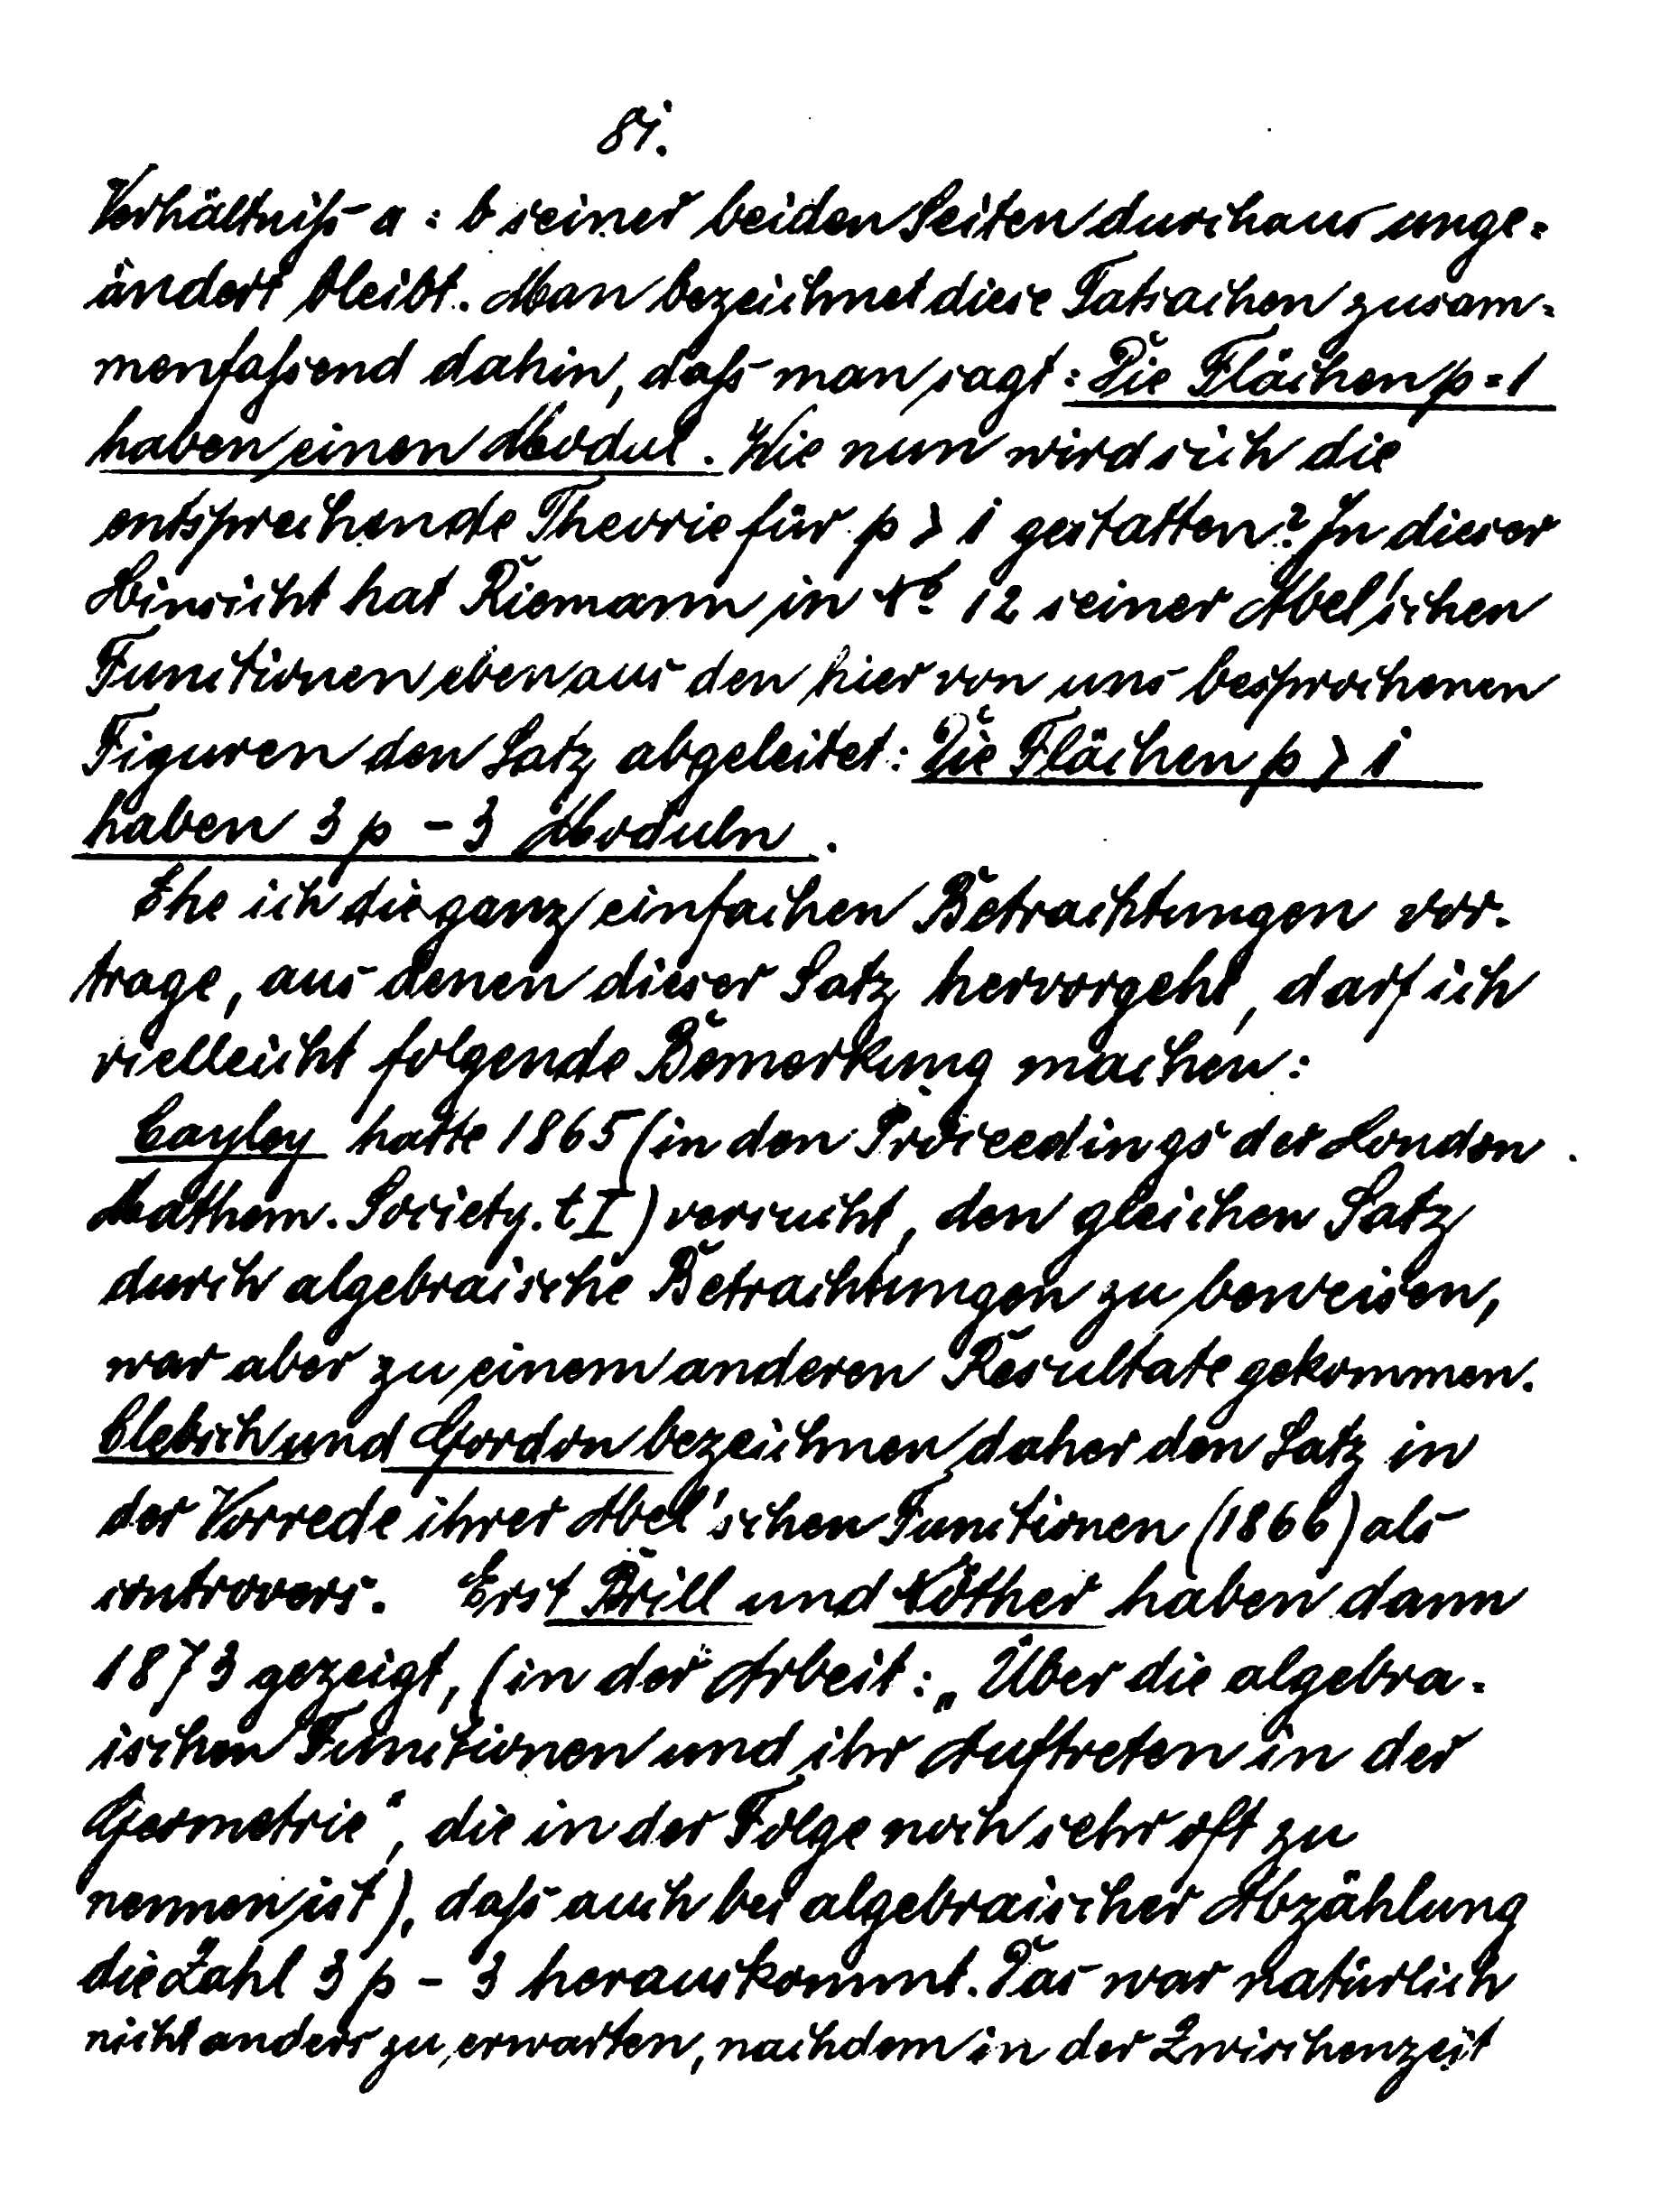 81.
Verhältniß a : b seiner beiden Seiten durchaus unge=
ändert bleibt. Man bezeichnet diese Tatsachen zusam=
menfaßend dahin, daß man sagt: Die Flächen p = 1
haben einen Modul. Wie nun wird sich die
entsprechende Theorie für p > 1 gestatten? In dieser
Hinsicht hat Riemann in No 12 seiner Abel'schen
Functionen eben aus den hier von uns besprochenen
Figuren den Satz abgeleitet: Die Flächen p > 1
haben 3 p - 3 Moduln.
Ehe ich die ganz einfachen Betrachtungen vor-
trage, aus denen dieser Satz hervorgeht, darf ich
vielleicht folgende Bemerkung machen:
Cayley hatte 1865 (in den Proceedings der London
Mathem. Society. t I) versucht, den gleichen Satz
durch algebraische Betrachtungen zu beweisen,
war aber zu einem anderen Resultate gekommen.
Clebsch und Gordon bezeichnen daher den Satz in
der Vorrede ihrer Abel'schen Functionen (1866) als
controvers. Erst Brill und Nöther haben dann
1873 gezeigt, (in der Arbeit: „Über die algebra-
ischen Functionen und ihr Auftreten in der
Geometrie“, die in der Folge noch sehr oft zu
nennen ist), daß auch bei algebraischer Abzählung
die Zahl 3 p - 3 herauskommt. Das war natürlich
nicht anders zu erwarten, nachdem in der Zwischenzeit